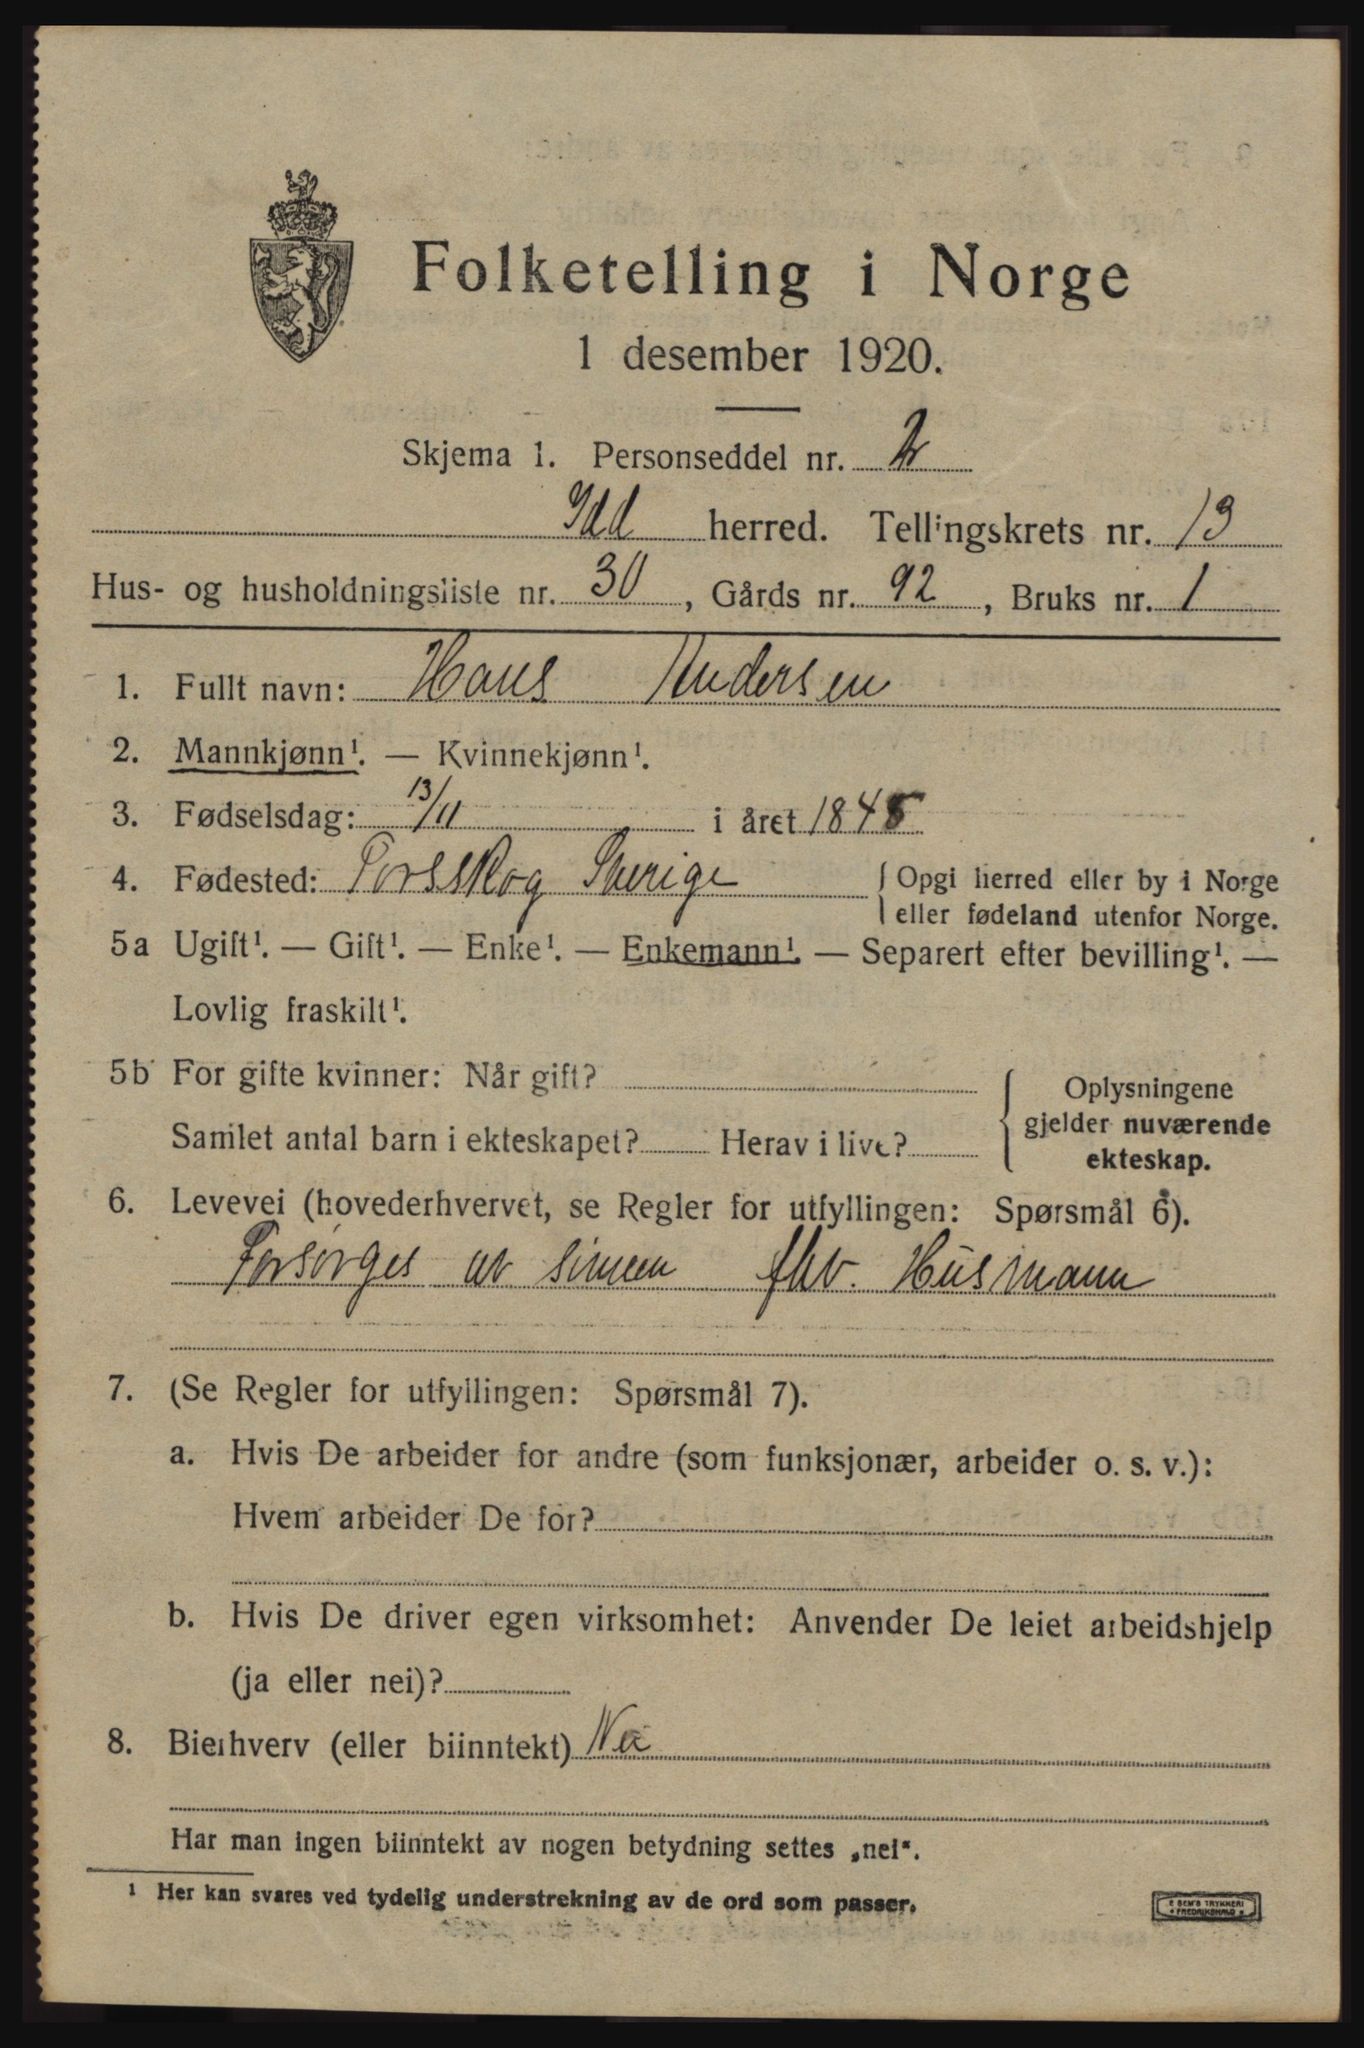 Folketelling i Norge
1 desember 1920.
Skjema 1. Personseddel nr. 2
Idd herred. Tellingskrets nr. 13
Hus- og husholdningsliste nr. 30, Gårds nr. 92, Bruks nr. 1
1. Fullt navn: Hans Andersen
2. Mannkjønn¹. — Kvinnekjønn¹.
3. Fødselsdag: 13/11 i året 1845
4. Fødested: Torsskog Sverige { Opgi herred eller by i Norge
eller fødeland utenfor Norge.
5a Ugift¹. — Gift¹. — Enke¹. — Enkemann¹. — Separert efter bevilling¹. —
Lovlig fraskilt¹.
5b For gifte kvinner: Når gift? { Oplysningene
gjelder nuværende
Samlet antal barn i ekteskapet? Herav i live?
ekteskap.
6. Levevei (hovederhvervet, se Regler for utfyllingen: Spørsmål 6).
Forsørges av fhv. Husmann
7. (Se Regler for utfyllingen: Spørsmål 7).
a. Hvis De arbeider for andre (som funksjonær, arbeider o. s. v.):
Hvem arbeider De for?
b. Hvis De driver egen virksomhet: Anvender De leiet arbeidshjelp
(ja eller nei)?
8. Bierhverv (eller biinntekt) Nei
Har man ingen biinntekt av nogen betydning settes „nei“.
¹ Her kan svares ved tydelig understrekning av de ord som passer.
SEM'S TRYKKERI
FREDRIKSHALD